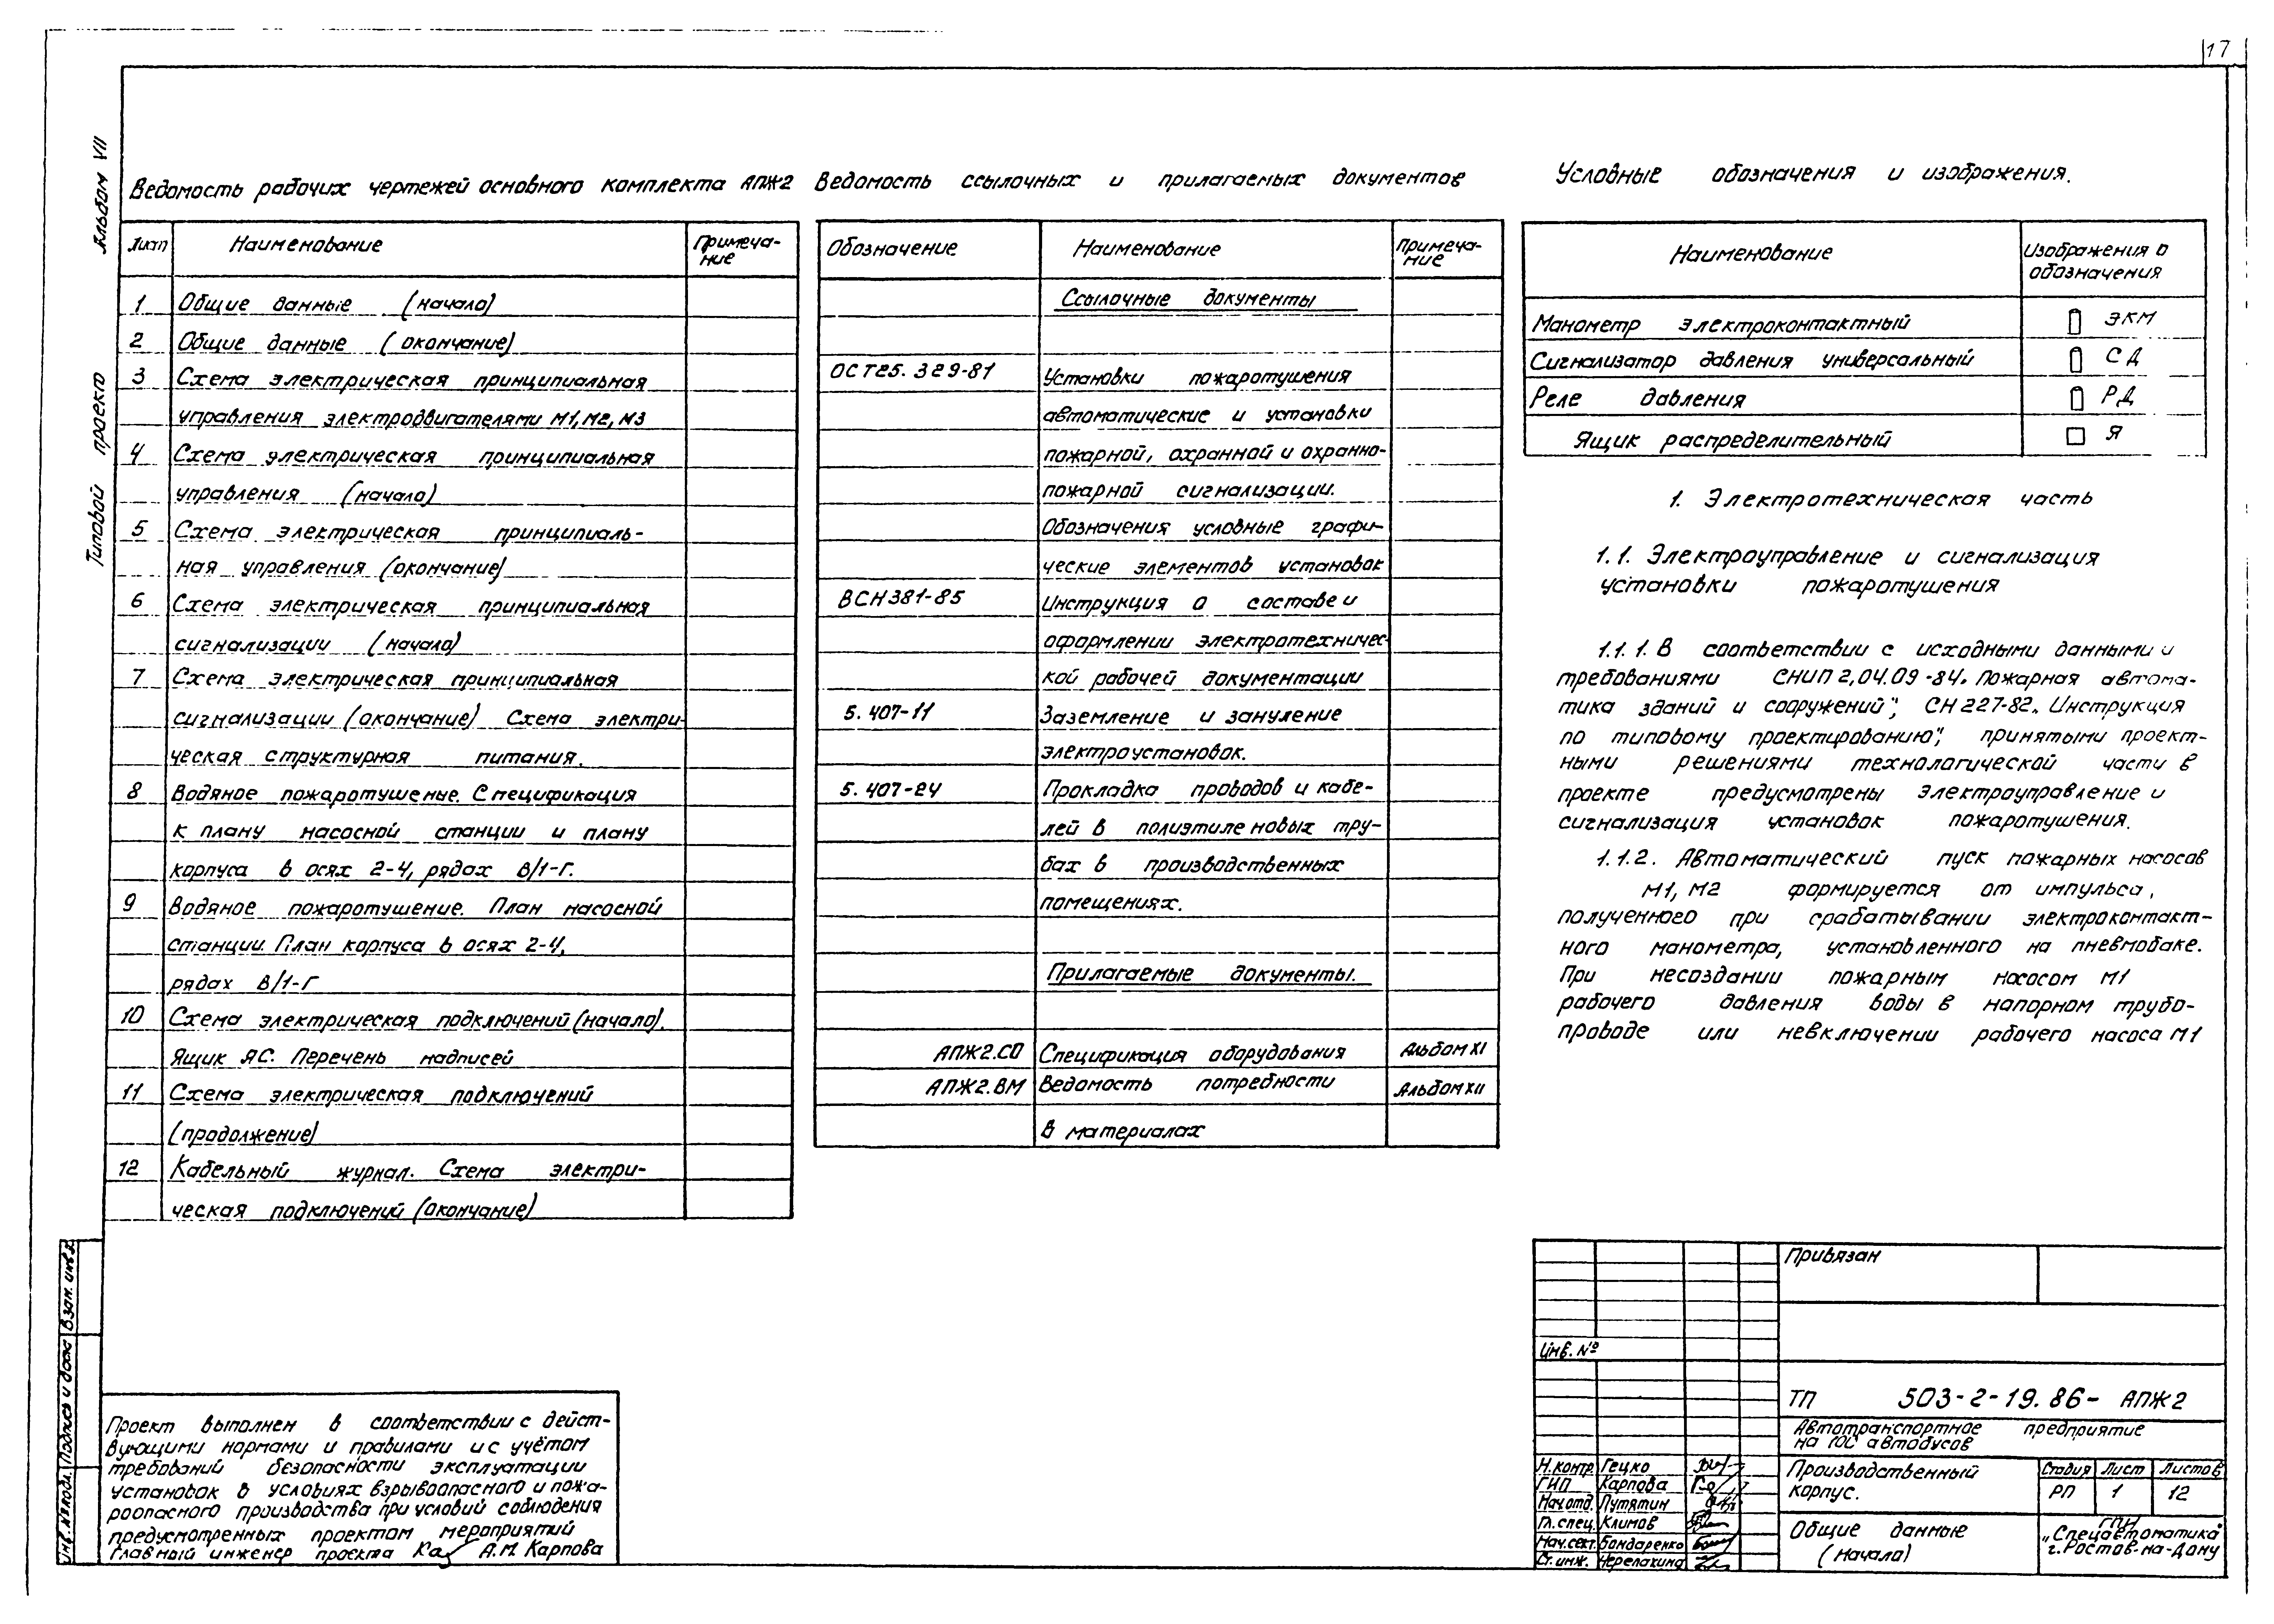 17
Альбом VII
Типовой проект
Ведомость рабочих чертежей основного комплекта АПЖ2
Лист Наименование Примеча-
ние
1 Общие данные (начало)
2 Общие данные (окончание)
3 Схема электрическая принципиальная
управления электродвигателями М1, М2, М3
4 Схема электрическая принципиальная
управления (начало)
5 Схема электрическая принципиаль-
ная управления (окончание)
6 Схема электрическая принципиальная
сигнализации (начало)
7 Схема электрическая принципиальная
сигнализации (окончание) Схема электри-
ческая структурная питания.
8 Водяное пожаротушение. Спецификация
к плану насосной станции и плану
корпуса в осях 2-4, рядах В/1-Г.
9 Водяное пожаротушение. План насосной
станции. План корпуса в осях 2-4,
рядах В/1-Г
10 Схема электрическая подключений (начало).
Ящик ЯС. Перечень надписей
11 Схема электрическая подключений
(продолжение)
12 Кабельный журнал. Схема электри-
ческая подключений (окончание)
Ведомость ссылочных и прилагаемых документов
Обозначение Наименование Примеча-
ние
Ссылочные документы
ОСТ25. 329-81 Установки пожаротушения
автоматические и установки
пожарной, охранной и охранно-
пожарной сигнализации.
Обозначения условные графи-
ческие элементов установок
ВСН381-85 Инструкция о составе и
оформлении электротехничес-
кой рабочей документации
5. 407-11 Заземление и зануление
электроустановок.
5. 407-24 Прокладка проводов и кабе-
лей в полиэтиленовых тру-
бах в производственных
помещениях.
Прилагаемые документы.
АПЖ2.СО Спецификация оборудования Альбом XI
АПЖ2.ВМ Ведомость потребности Альбом XII
в материалах
Условные обозначения и изображения.
Наименование Изображения о
обозначения
Манометр электроконтактный ЭКМ
Сигнализатор давления универсальный СД
Реле давления РД
Ящик распределительный Я
1. Электротехническая часть
1.1. Электроуправление и сигнализация
установки пожаротушения
1.1.1. В соответствии с исходными данными и
требованиями СНИП 2.04.09-84 „Пожарная автома-
тика зданий и сооружений", СН 227-82 „Инструкция
по типовому проектированию", принятыми проект-
ными решениями технологической части в
проекте предусмотрены электроуправление и
сигнализация установок пожаротушения.
1.1.2. Автоматический пуск пожарных насосов
М1, М2 формируется от импульса,
полученного при срабатывании электроконтакт-
ного манометра, установленного на пневмобаке.
При несоздании пожарным насосом М1
рабочего давления воды в напорном трубо-
проводе или невключении рабочего насоса М1
Инв.№подл. Подпись и дата Взам. инв.№
Проект выполнен в соответствии с дейст-
вующими нормами и правилами и с учётом
требований безопасности эксплуатации
установок в условиях взрывоопасного и пожа-
роопасного производства при условий соблюдения
предусмотренных проектом мероприятий
Главный инженер проекта А.М. Карпова
Привязан
Инв. №
ТП 503-2-19.86- АПЖ2
Автотранспортное предприятие
на 100 автобусов
Н.контр. Гецко
ГИП Карпова
Нач.отд. Путятин
Гл.спец. Климов
Нач.сект. Бондаренко
Ст.инж. Черепахина
Производственный
корпус.
Стадия Лист Листов
РП 1 12
Общие данные
(начало)
ГПИ
„Спецавтоматика"
г. Ростов-на-Дону